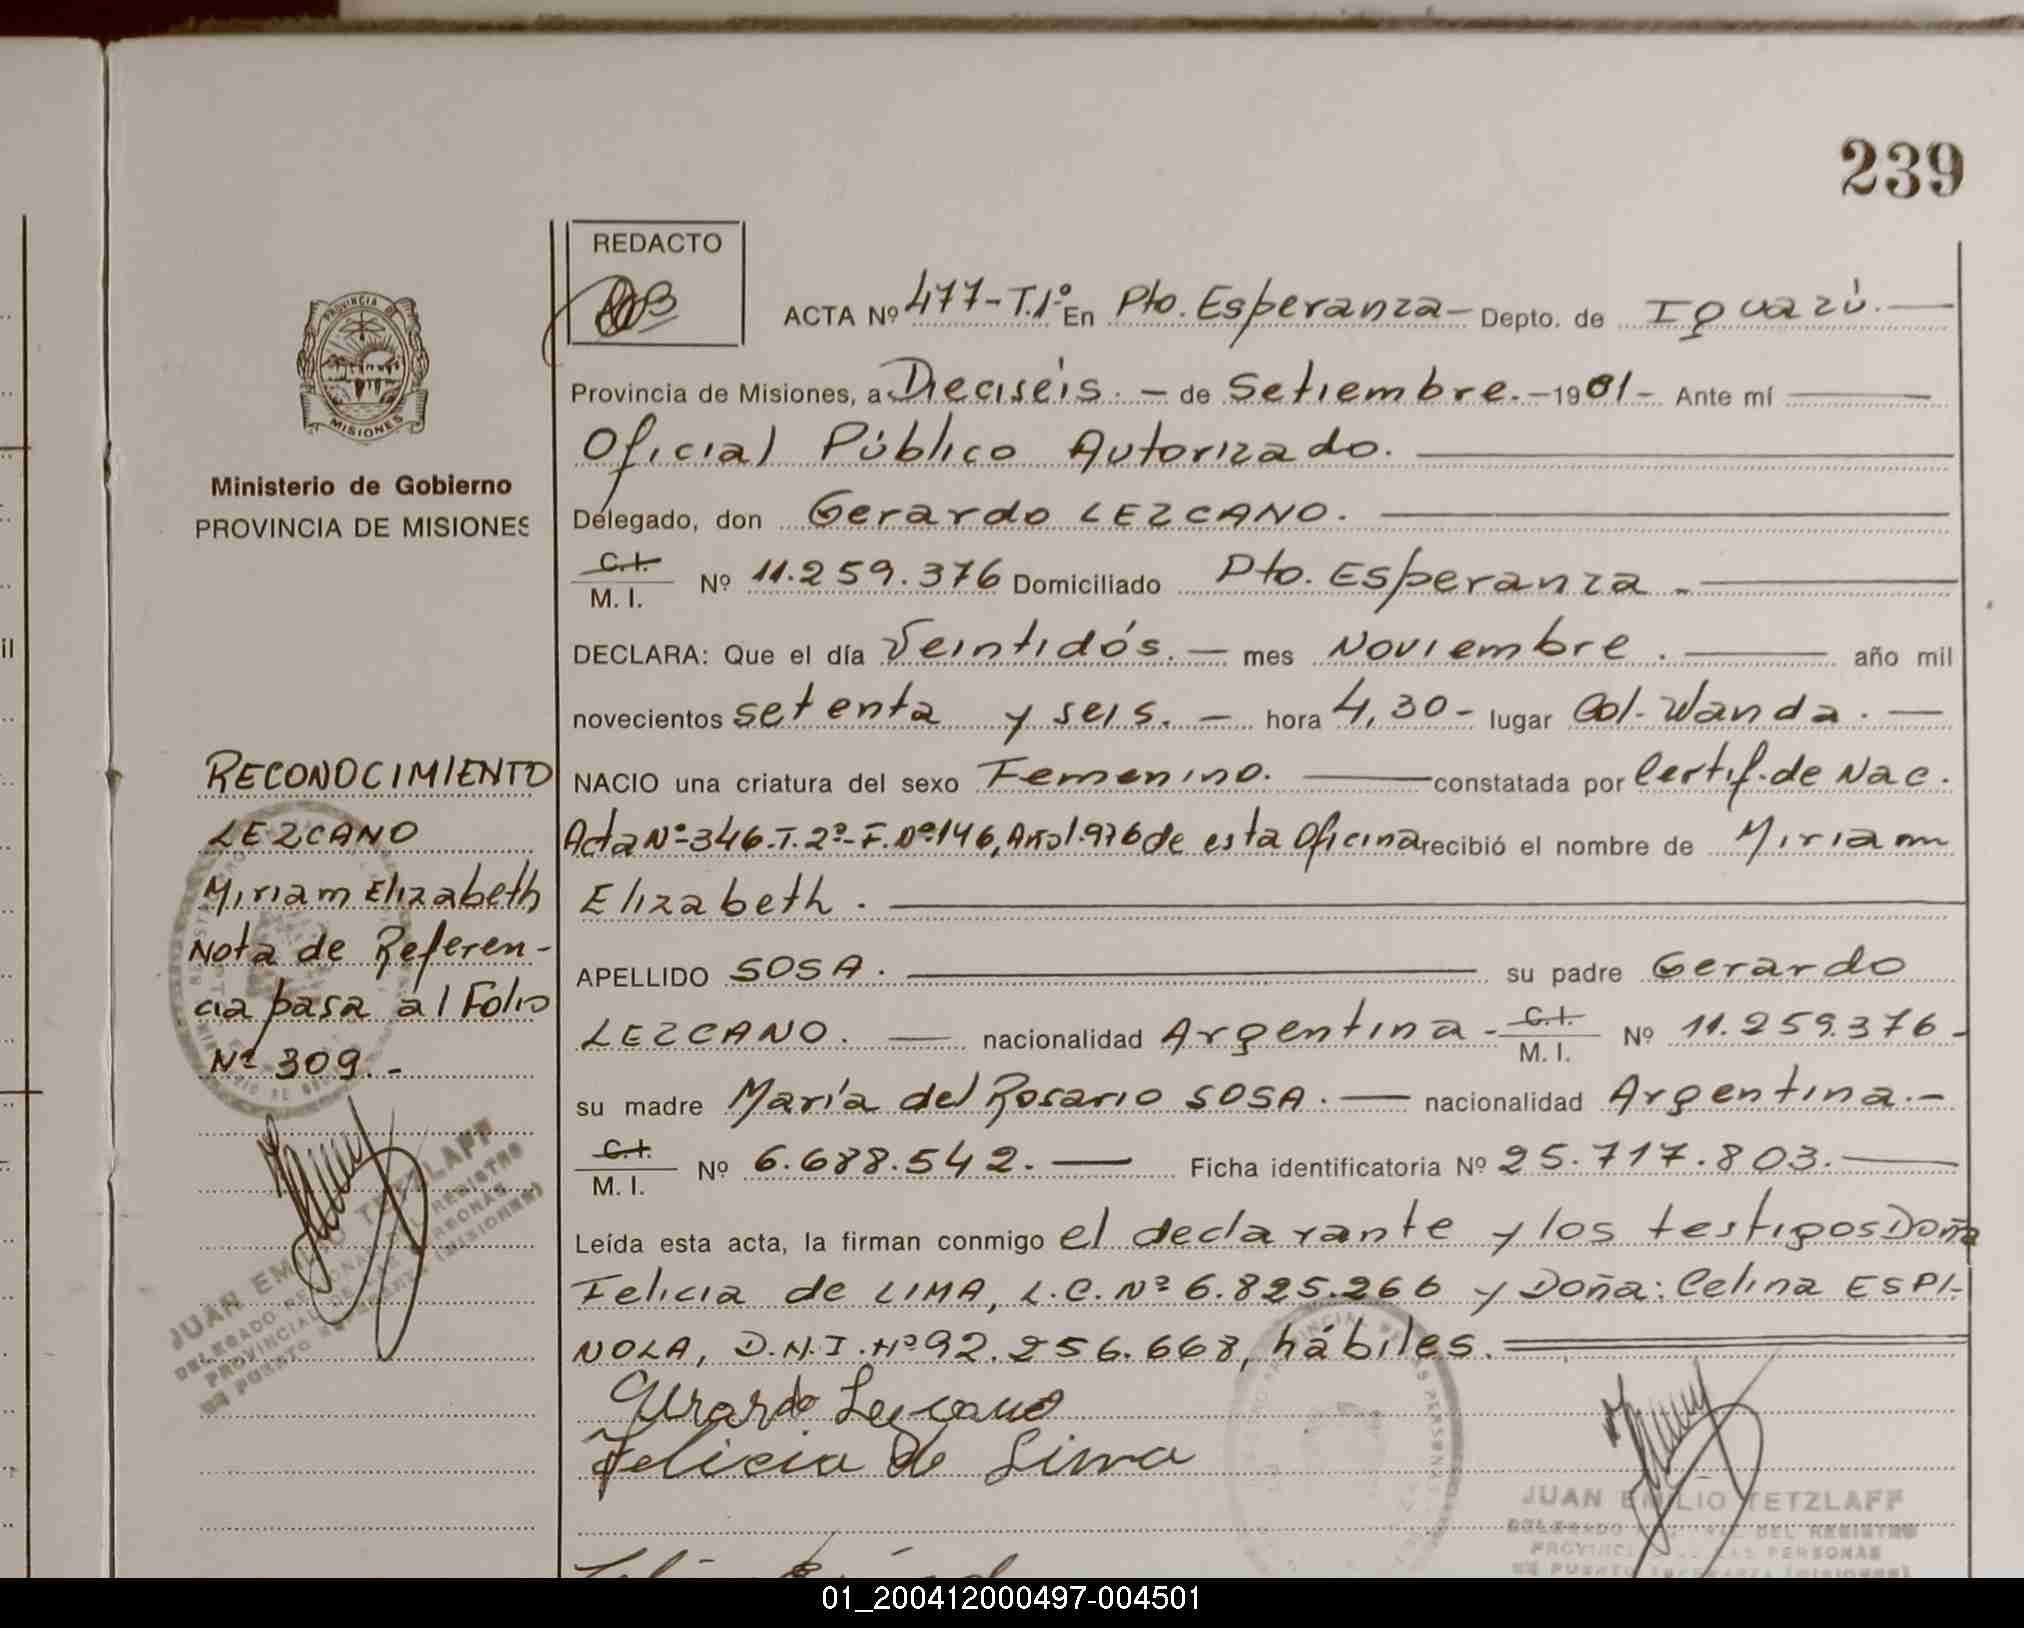 239
REDACTO
ACTA Nº 477-T.1º En Pto. Esperanza- Depto. de Iguazú.-
Provincia de Misiones, a Dieciséis.- de Setiembre.-1981- Ante mí
Oficial Público Autorizado.
Delegado, don Gerardo LEZCANO.
C.I.
M. I. Nº 11.259.376 Domiciliado Pto. Esperanza.-
DECLARA: Que el día Veintidós.- mes Noviembre. año mil
novecientos setenta y seis.- hora 4,30- lugar Col. Wanda.-
NACIO una criatura del sexo Femenino. constatada por Certif. de Nac.
Acta Nº-346-T.2º-F.Nº146, Año 1.976 de esta Oficina recibió el nombre de Miriam
Elizabeth.
APELLIDO SOSA. su padre Gerardo
LEZCANO. nacionalidad Argentina- C.I.
M. I. Nº 11.259.376-
su madre María del Rosario SOSA.- nacionalidad Argentina.-
C.I.
M. I. Nº 6.688.542.- Ficha identificatoria Nº 25.717.803.-
Leída esta acta, la firman conmigo el declarante y los testigos Doña
Felicia de LIMA, L.C. Nº 6.825.266 y Doña: Celina ESPI-
NOLA, D.N.I. Nº 92.256.668, hábiles.
Gerardo Lezcano
Felicia de Lima
JUAN EMILIO TETZLAFF
DELEGADO DEL REGISTRO
PERSONAS
PROVINCIA
MISIONES
Ministerio de Gobierno
PROVINCIA DE MISIONES
RECONOCIMIENTO
LEZCANO
Miriam Elizabeth
Nota de Referen-
cia pasa al Folio
Nº 309.-
JUAN EMILIO TETZLAFF
DELEGADO REGISTRO
PROVINCIAL PERSONAS
PUERTO (MISIONES)
il
01_200412000497-004501